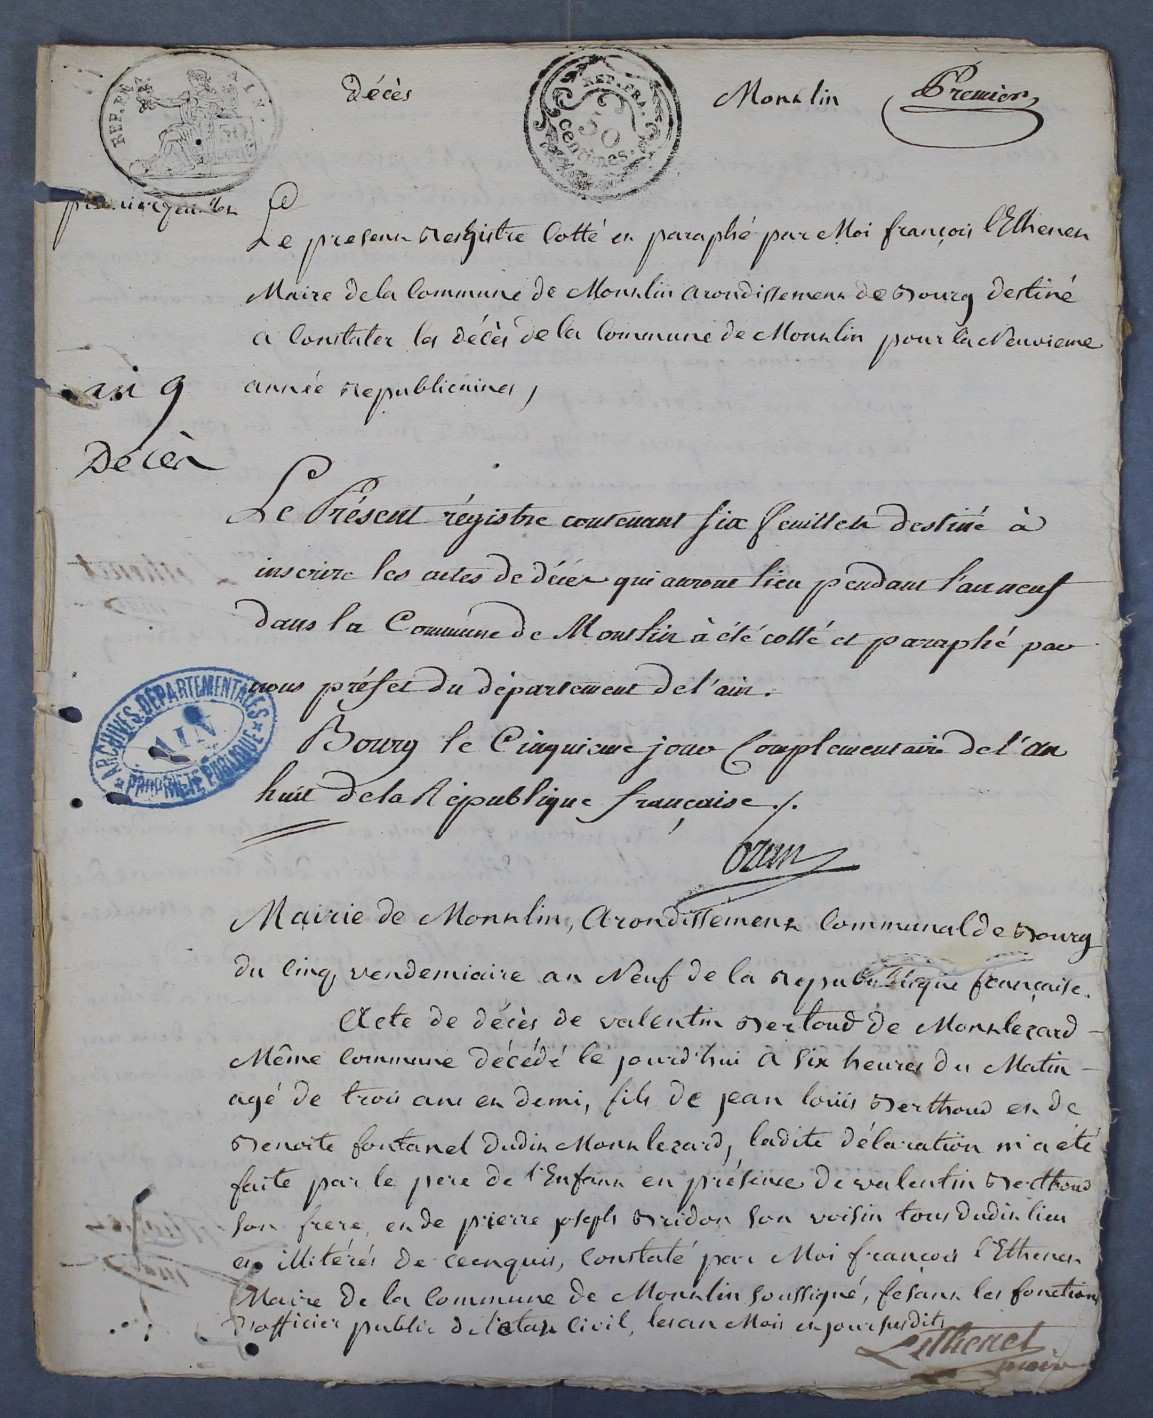 REP. FRA.
Décès
REP. FRA.
50
centimes.
Montlin
Premier
Le present Registre Cotté et paraphé par Moi françois l'Ethenet
Maire de la Commune de Montlin arondissement de Bourg destiné
a Constater les décès de la Commune de Montlin pour la Neuvieme
an 9
année Republicaines,
Décès
Le Présent régistre contenant six feuillets destiné à
inscrire les actes de décès qui auront lieu pendant l'an neuf
dans la Commune de Montlin à été cotté et paraphé par
nous préfet du département de l'ain.
ARCHIVES DÉPARTEMENTALES
AIN
PROPRIÉTÉ PUBLIQUE
Bourg le Cinquieme jour Complementaire de l'an
huit de la République française ./.
Mairie de Montlin, Arondissement Communal de Bourg
du Cinq vendemiaire an Neuf de la Republique française.
Acte de décès de valentin Bertoud de Montlezard
Même Commune décédé le jourd'hui a Six heures du Matin
agé de trois ans et demi, fils de jean louis Berthoud et de
Benoite fontanel dudit Montlezard, ladite déclaration m'a été
faite par le pere de l'Enfant en présence de valentin Berthoud
son frere, et de pierre joseph Bridon son voisin tous dudit lieu
et illitérés de ce enquis, Constaté par Moi françois l'Ethenet
Maire de la Commune de Montlin soussigné, fesant les fonctions
d'officier public de l'etat Civil, les an Mois et jour susdits
L'Ethenet
maire